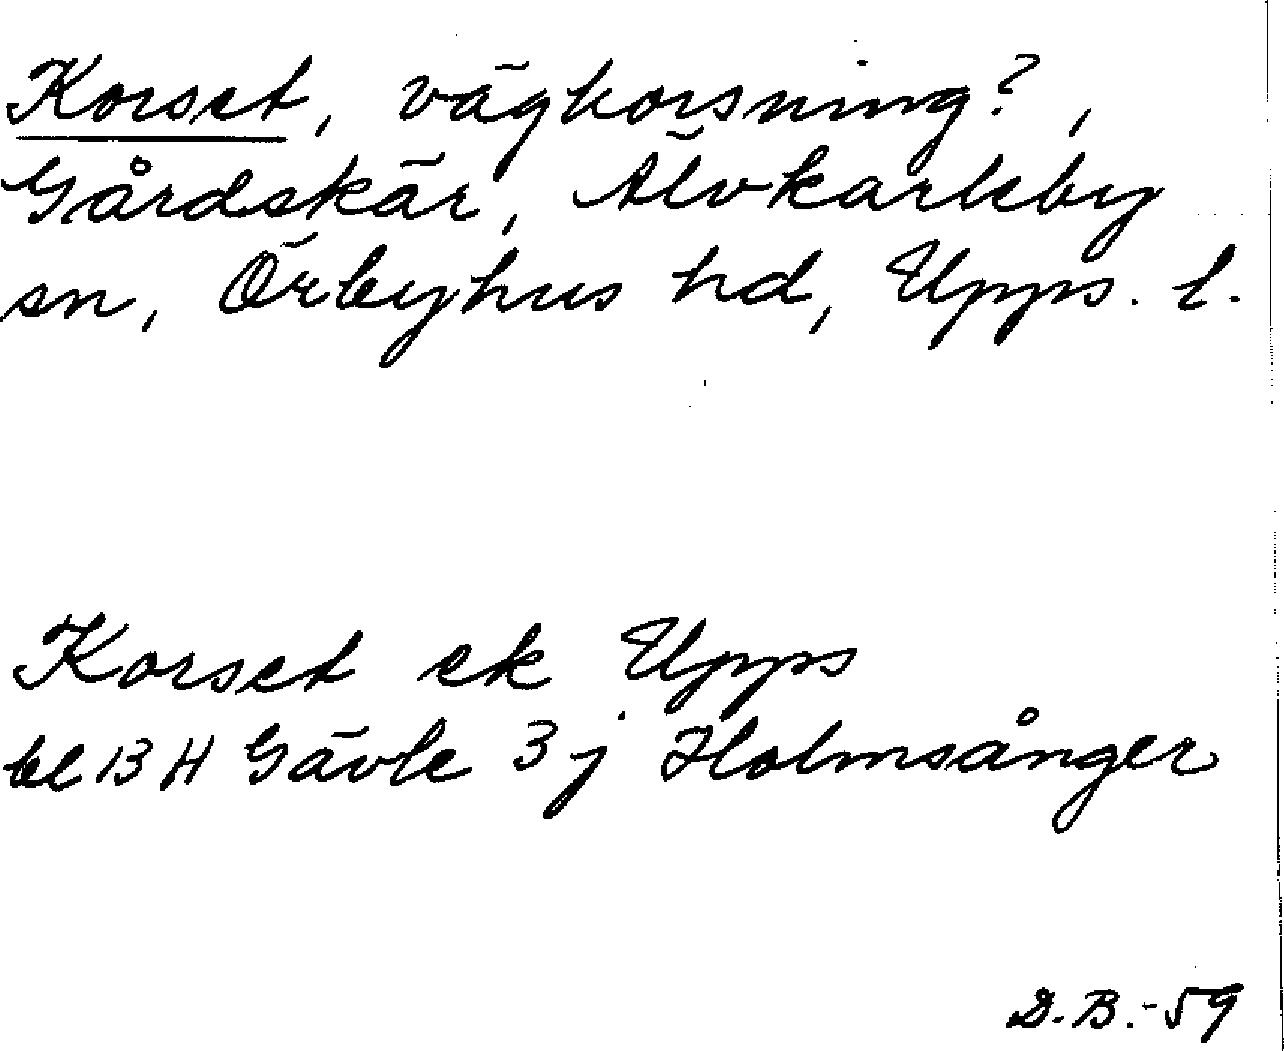 Korset, vägkorsning?,
Gårdskär, Älvkarleby
sn, Örbyhus hd, Upps. l.
Korset ek Upps
bl 13 H Gävle 3 j Holmsånger
D.B.-59